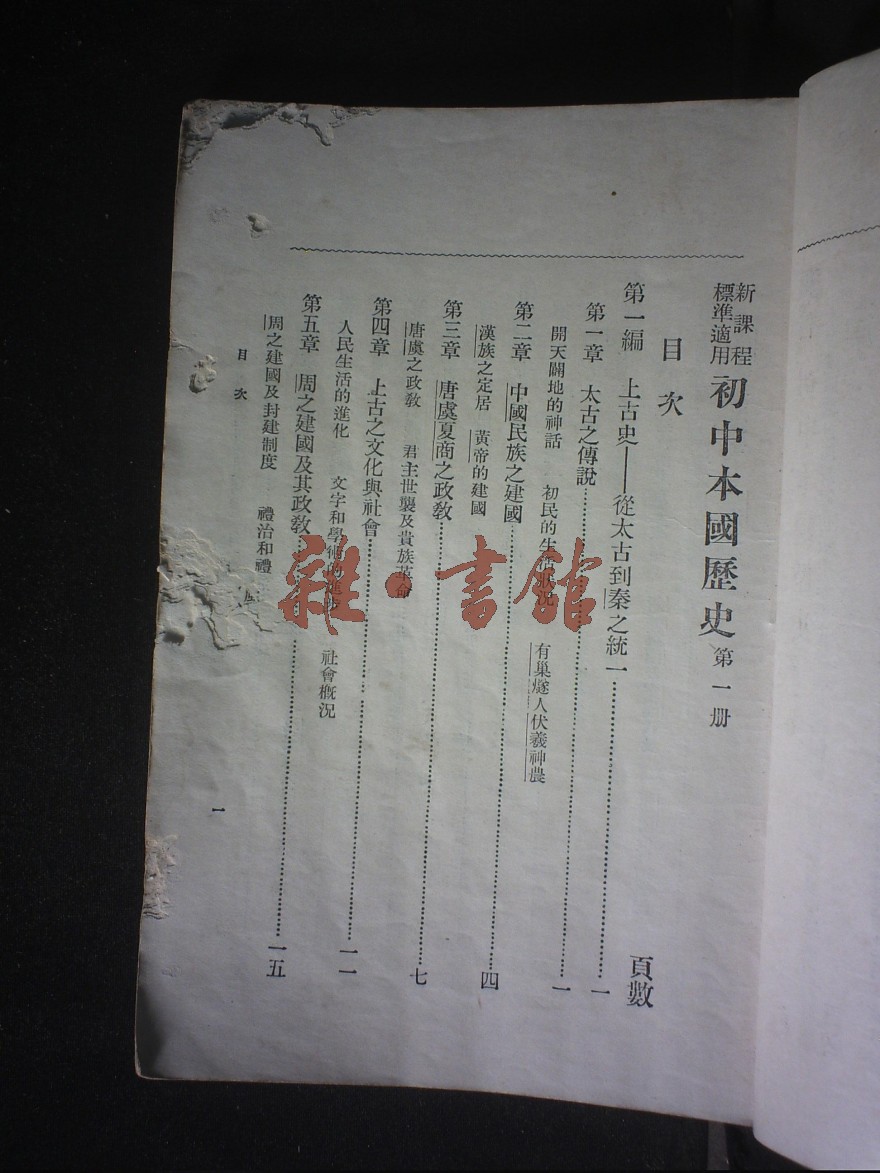 新課程
標準適用
初中本國歷史 第一册
目次
頁數
第一編 上古史——從太古到秦之統一……一
第一章 太古之傳說……一
開天闢地的神話 初民的生活狀況 有巢燧人伏羲神農
第二章 中國民族之建國……四
漢族之定居 黃帝的建國
第三章 唐虞夏商之政教……七
唐虞之政教 君主世襲及貴族革命
第四章 上古之文化與社會……一一
人民生活的進化 文字和學術的進步 社會概況
第五章 周之建國及其政教……一五
周之建國及封建制度 禮治和禮
目次
一
雜·書館